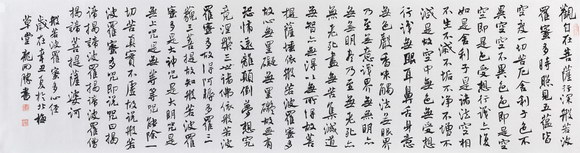 觀自在菩薩行深般若波
羅蜜多時照見五蘊皆
空度一切苦厄舍利子色不
異空空不異色色即是空
空即是色受想行識亦復
如是舍利子是諸法空相
不生不滅不垢不淨不增不
減是故空中無色無受想
行識無眼耳鼻舌身意
無色聲香味觸法無眼界
乃至無意識界無無明亦
無無明盡乃至無老死亦
無老死盡無苦集滅道
無智亦無得以無所得故菩
提薩埵依般若波羅蜜多
故心無罣礙無罣礙故無有
恐怖遠離顛倒夢想究
竟涅槃三世諸佛依般若波
羅蜜多故得阿耨多羅三
藐三菩提故知般若波羅
蜜多是大神咒是大明咒是
無上咒是無等等咒能除一
切苦真實不虛故說般若
波羅蜜多咒即說咒曰揭
諦揭諦波羅揭諦波羅僧
揭諦菩提薩婆訶
般若波羅蜜多心經
歲在夏於北
草堂勝書